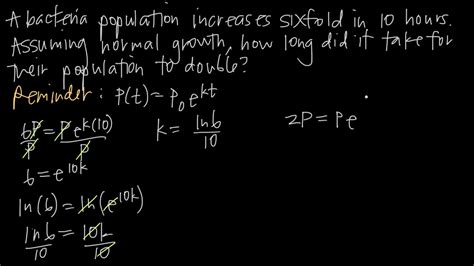 A bacteria population increases sixfold in 10 hours.
Assuming normal growth, how long did it take for
their population to double?
Reminder: P(t) = P₀e^{kt}
6P/P = Pe^{k(10)}/P
k = ln6/10
2P = Pe
6 = e^{10k}
ln(6) = ln(e^{10k})
ln6/10 = 10k/10